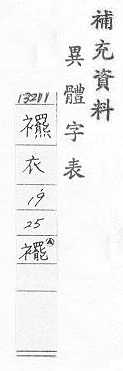 補充資料
異體字表
13211
衣
19
25
襬